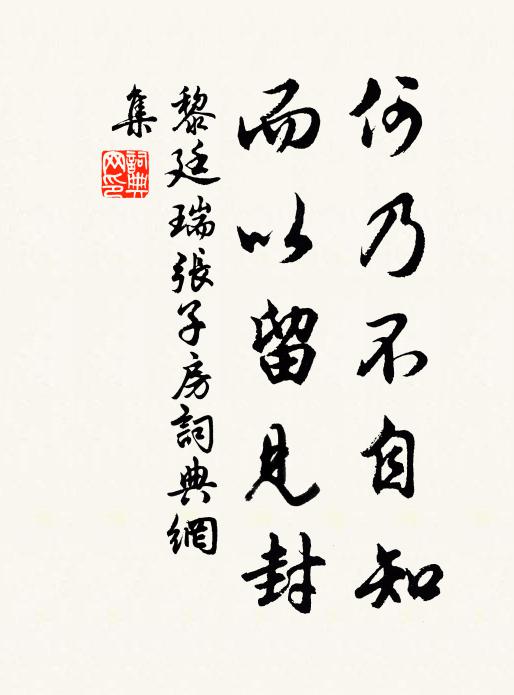 何乃不自知
而以留見封
黎廷瑞張子房詞典網
集
詞典
网印